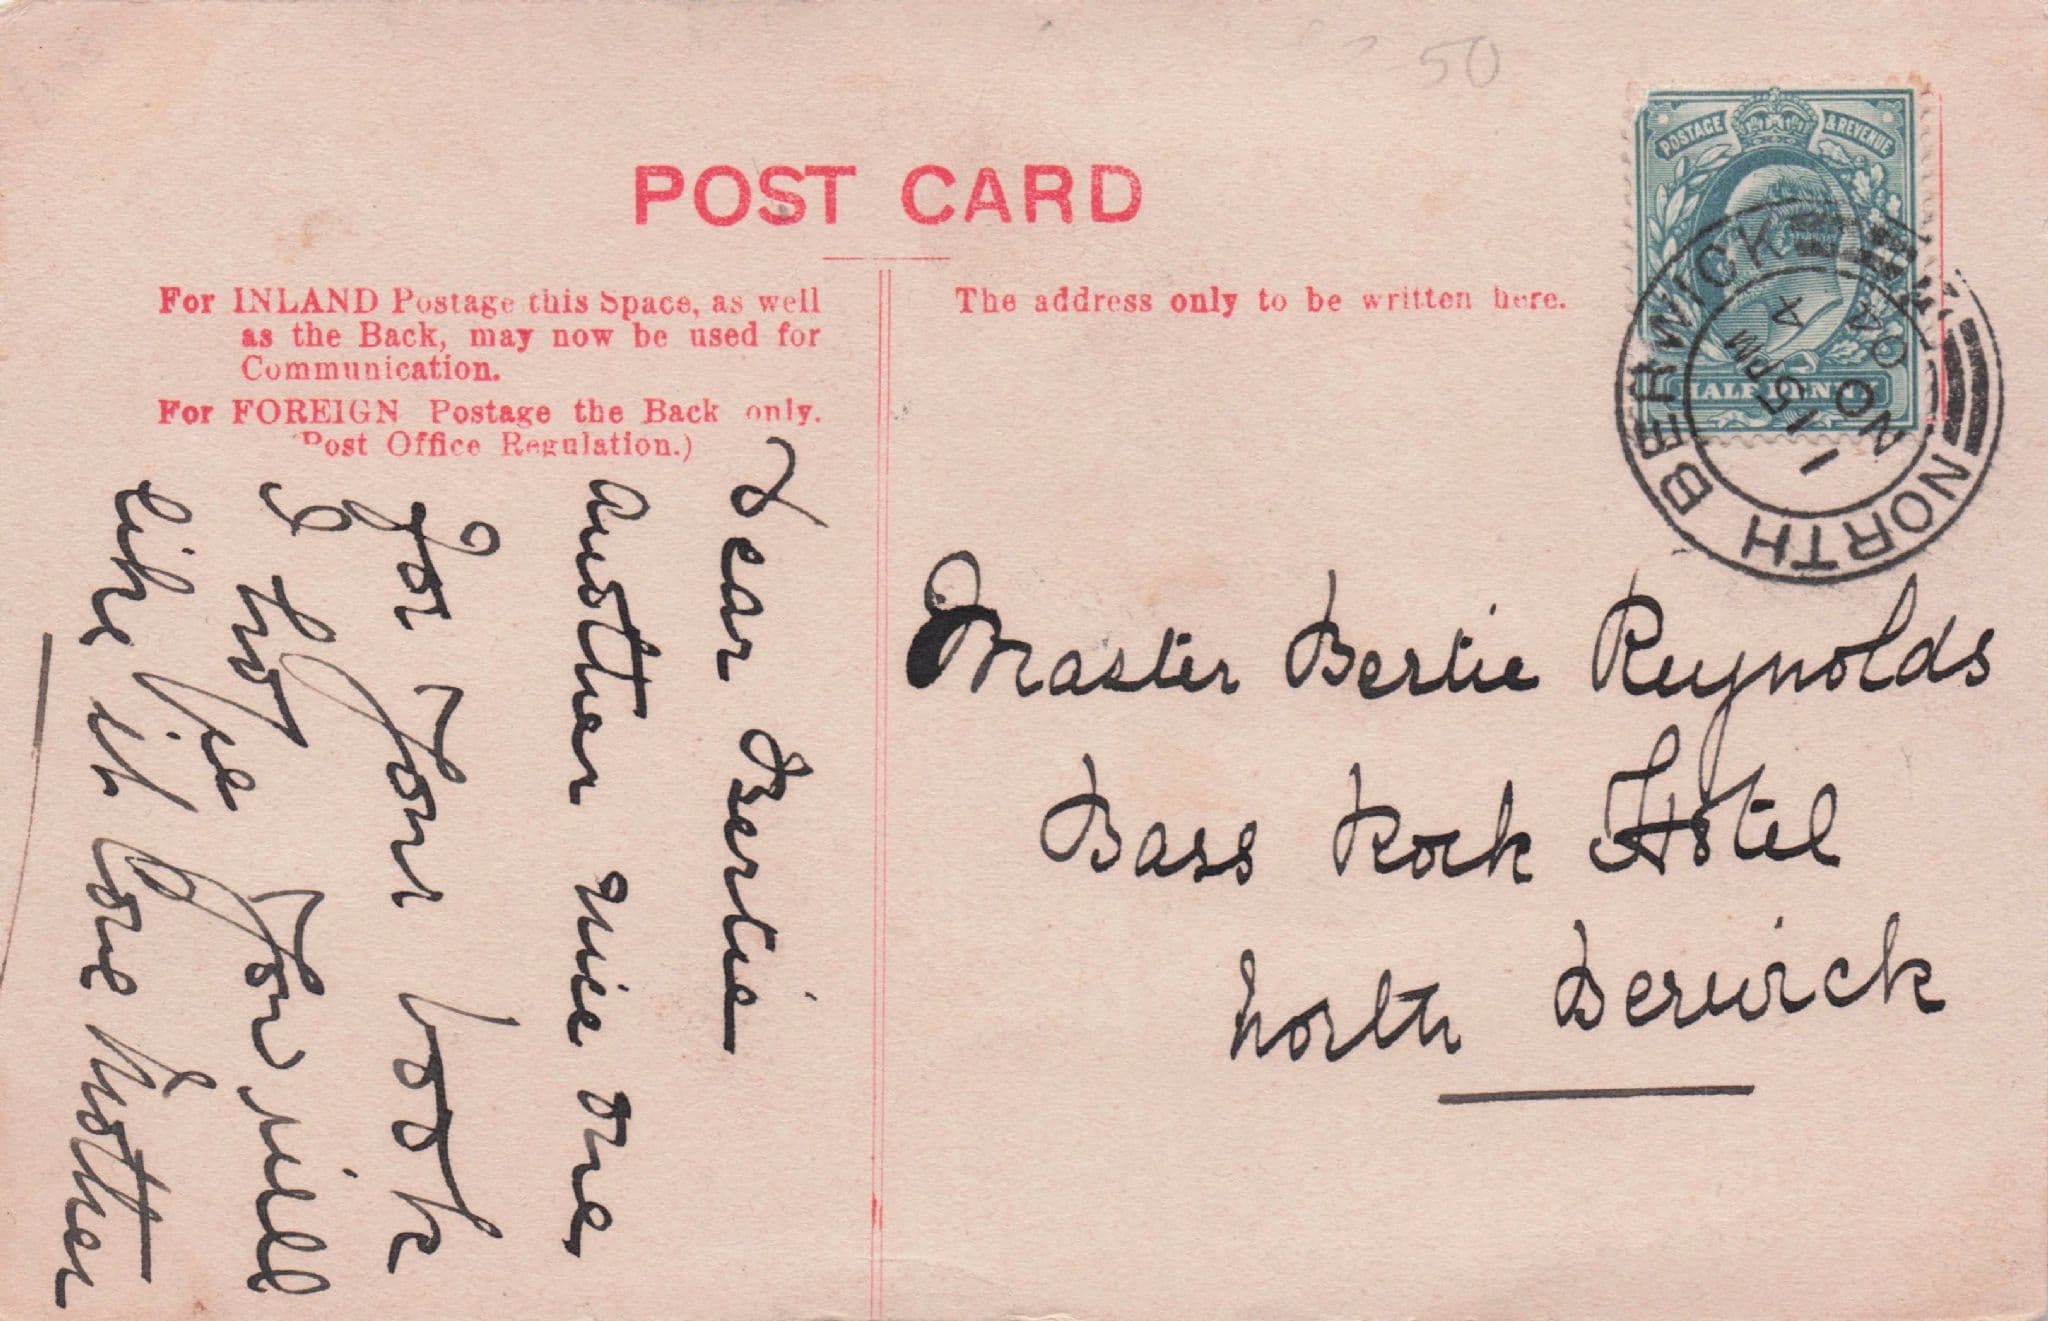 50
POST CARD
For INLAND Postage this Space, as well
as the Back, may now be used for
Communication.
For FOREIGN Postage the Back only.
Post Office Regulation.)
The address only to be written here.
POSTAGE & REVENUE
HALF PENNY
NORTH BERWICK
1 15 PM
NO 4
04
Dear Bertie
another nice one
for your book
I hope you will
like it love Mother
Master Bertie Reynolds
Bass Rock Hotel
North Berwick